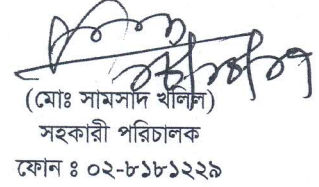 (মোঃ সামসাদ খলিল)
সহকারী পরিচালক
ফোন ঃ ০২-৮১৮১২২৯